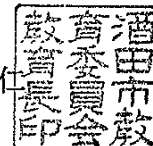 酒田市教
育委員会
教育長印
仁